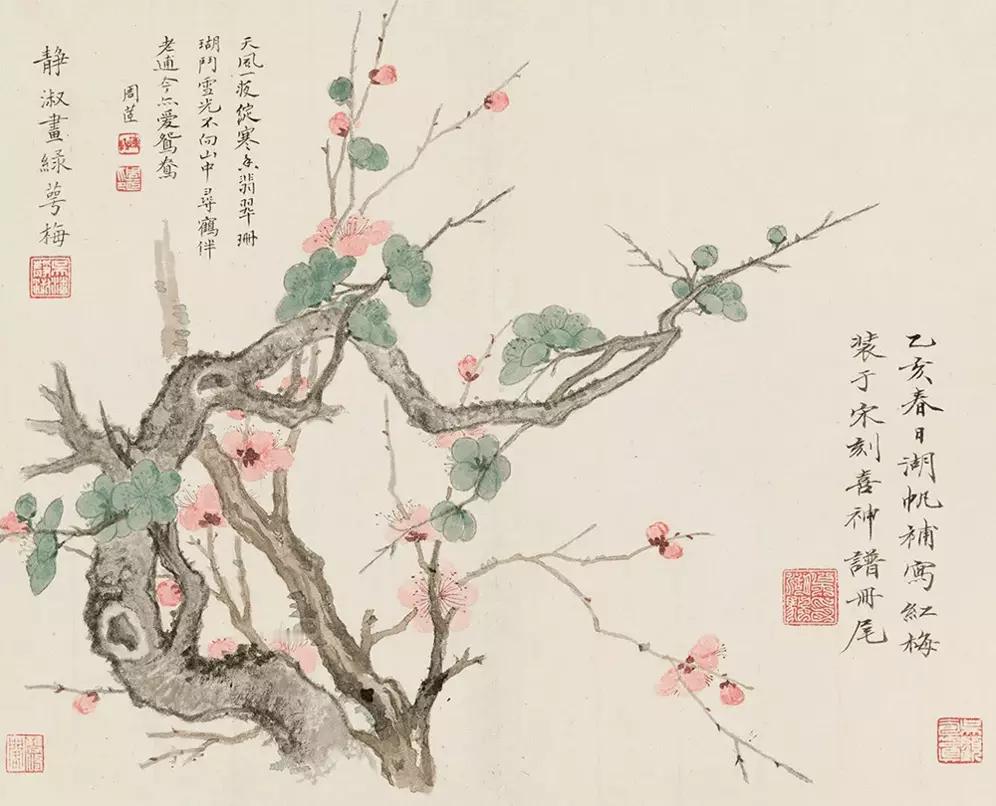 乙亥春日湖帆補寫紅梅
装于宋刻喜神譜冊尾
天風一夜綻寒香翡翠珊
瑚鬥雪光不向山中尋鶴伴
老逋今亦愛鴛鴦
周
静淑畫緑萼梅